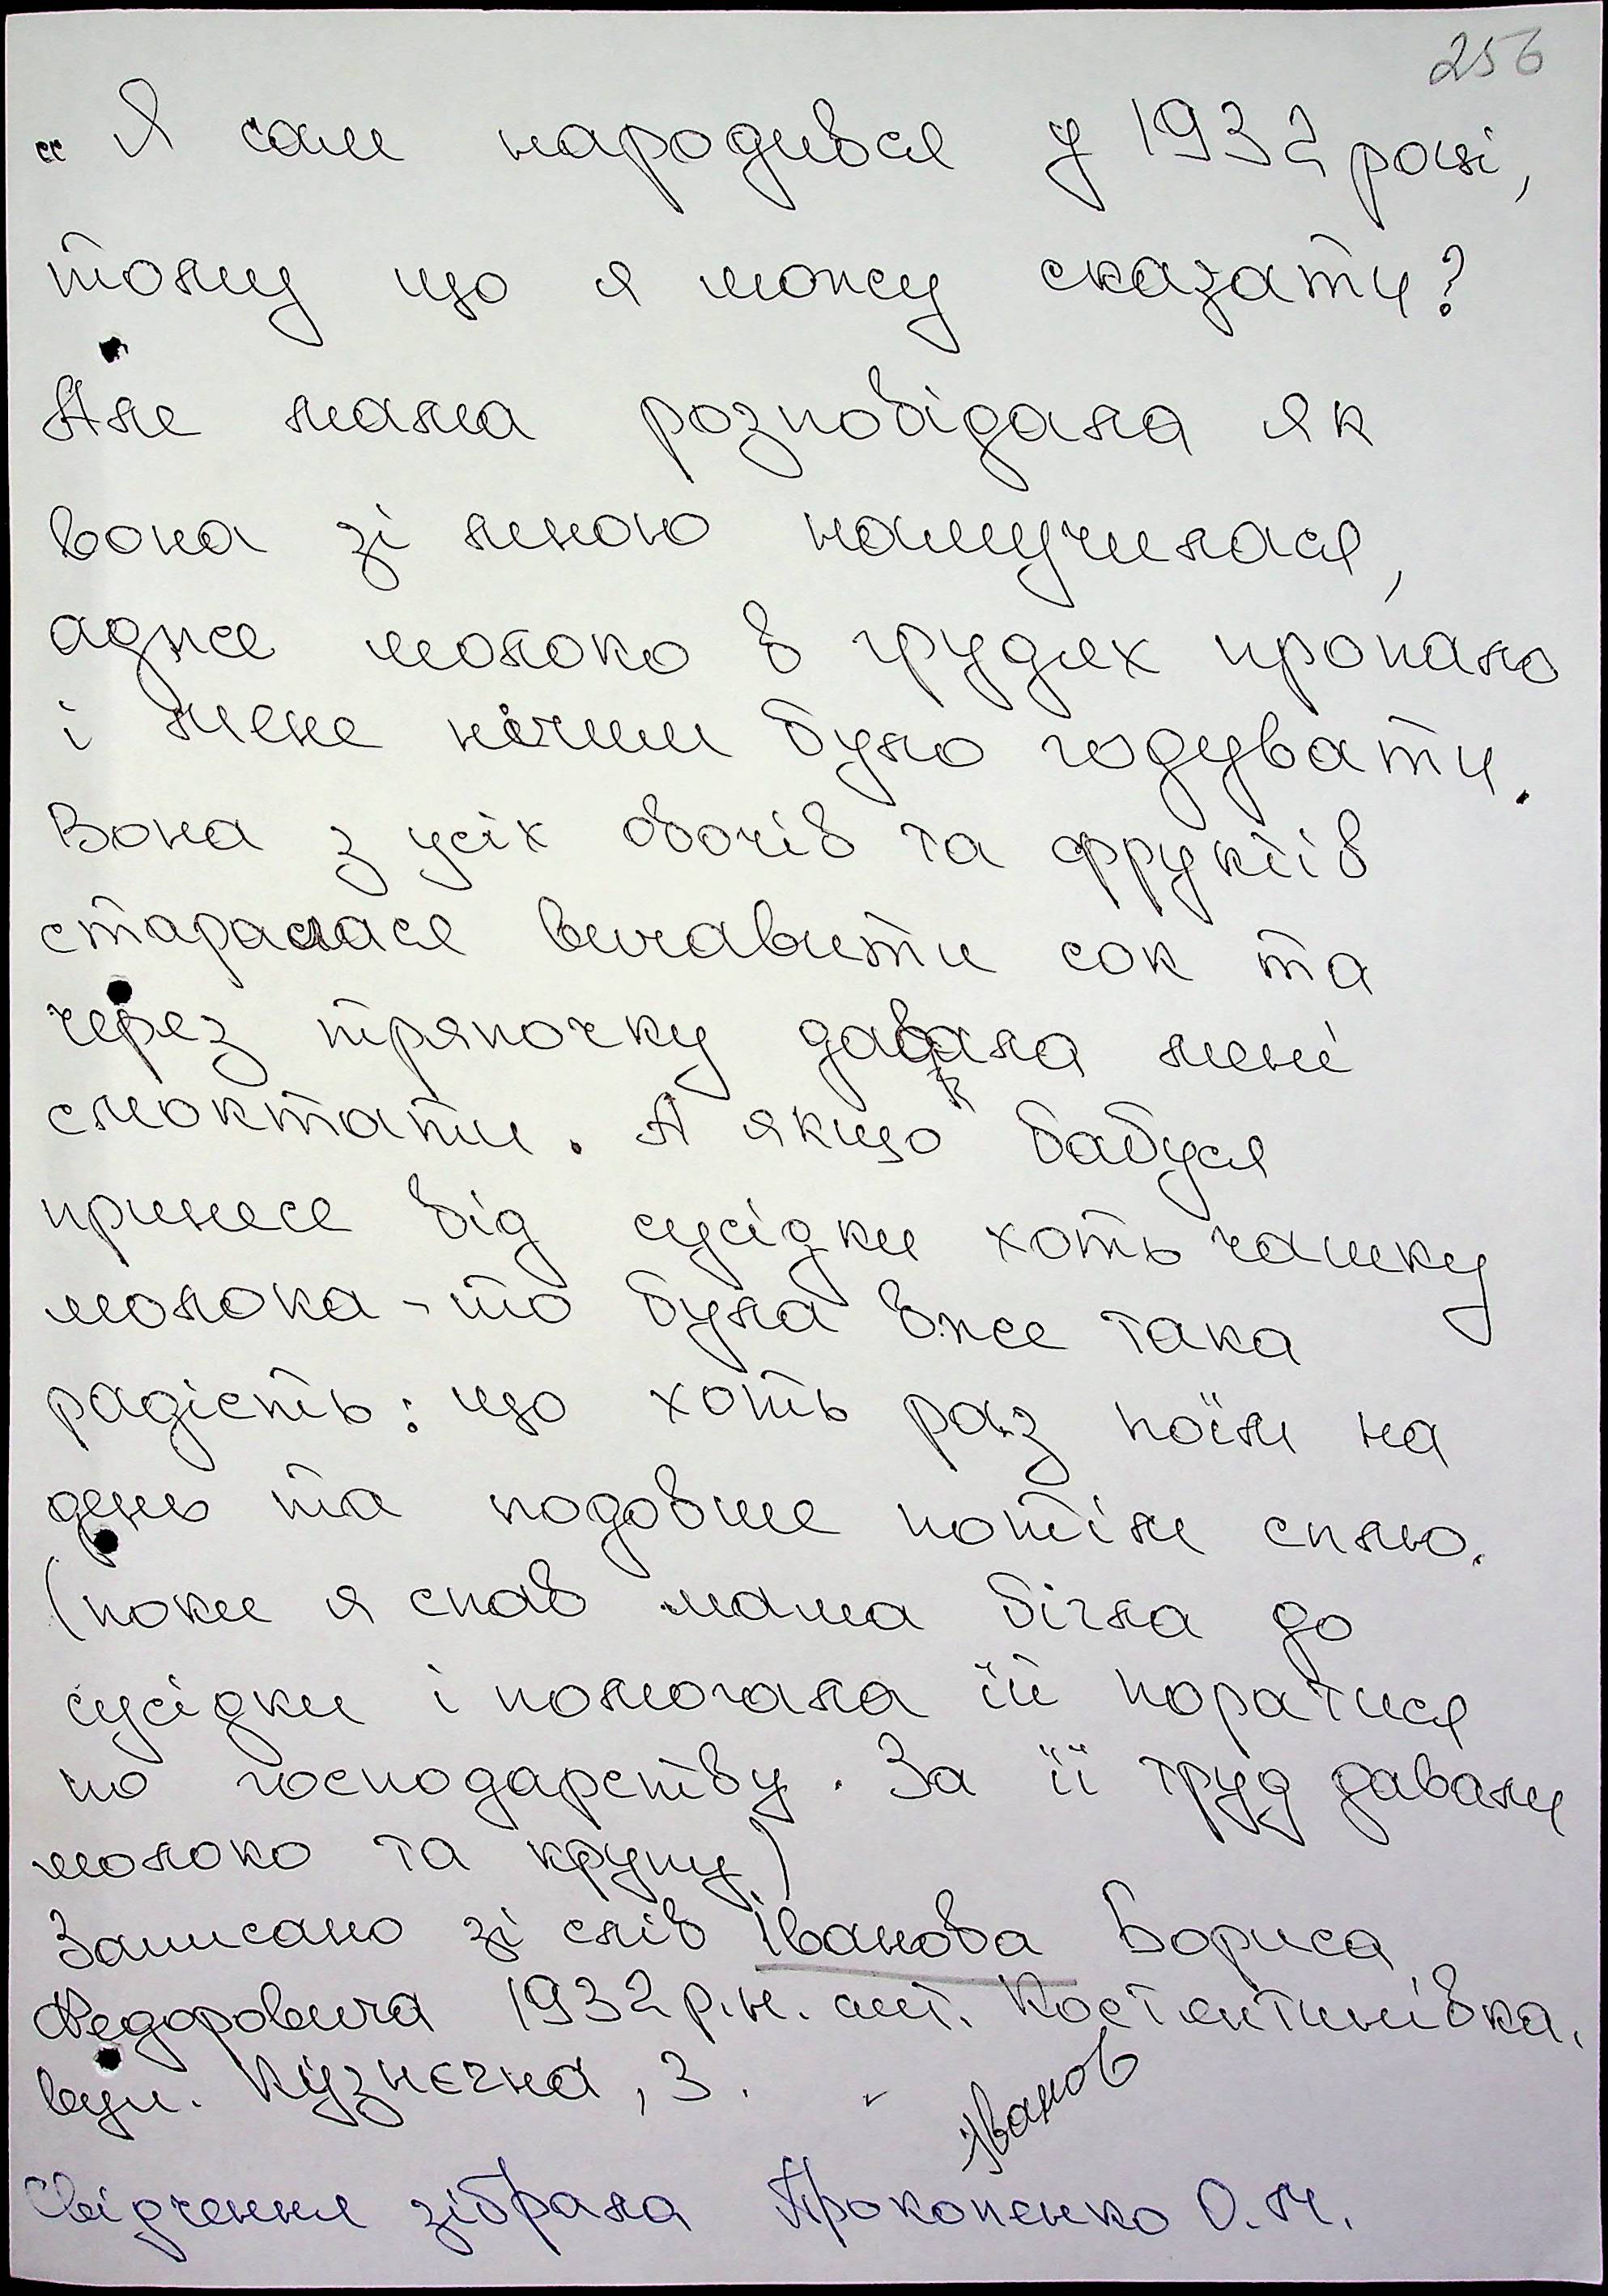 256
„ Я сам народився у 1932 році,
тому що я можу сказати?
Але мама розповідала як
вона зі мною намучилася,
адже молоко в грудях пропало
і мене нічим було годувати.
Вона з усіх овочів та фруктів
старалася вичавити сок та
через тряпочку давала мені
смоктати. А якщо бабуся
принесе від сусідки хоть чашку
молока - то була вже така
радість: що хоть раз поїм на
день та подовше потім сплю.
(поки я спав мама бігла до
сусідки і помогала їй поратися
по господарству. За її труд давали
молоко та крупу)
Записано зі слів Іванова Бориса
Федоровича 1932 р.н. смт. Костянтинівка.
вул. Кузнєчна, 3.
Іванов
Свідчення зібрала Прокопенко О.М.